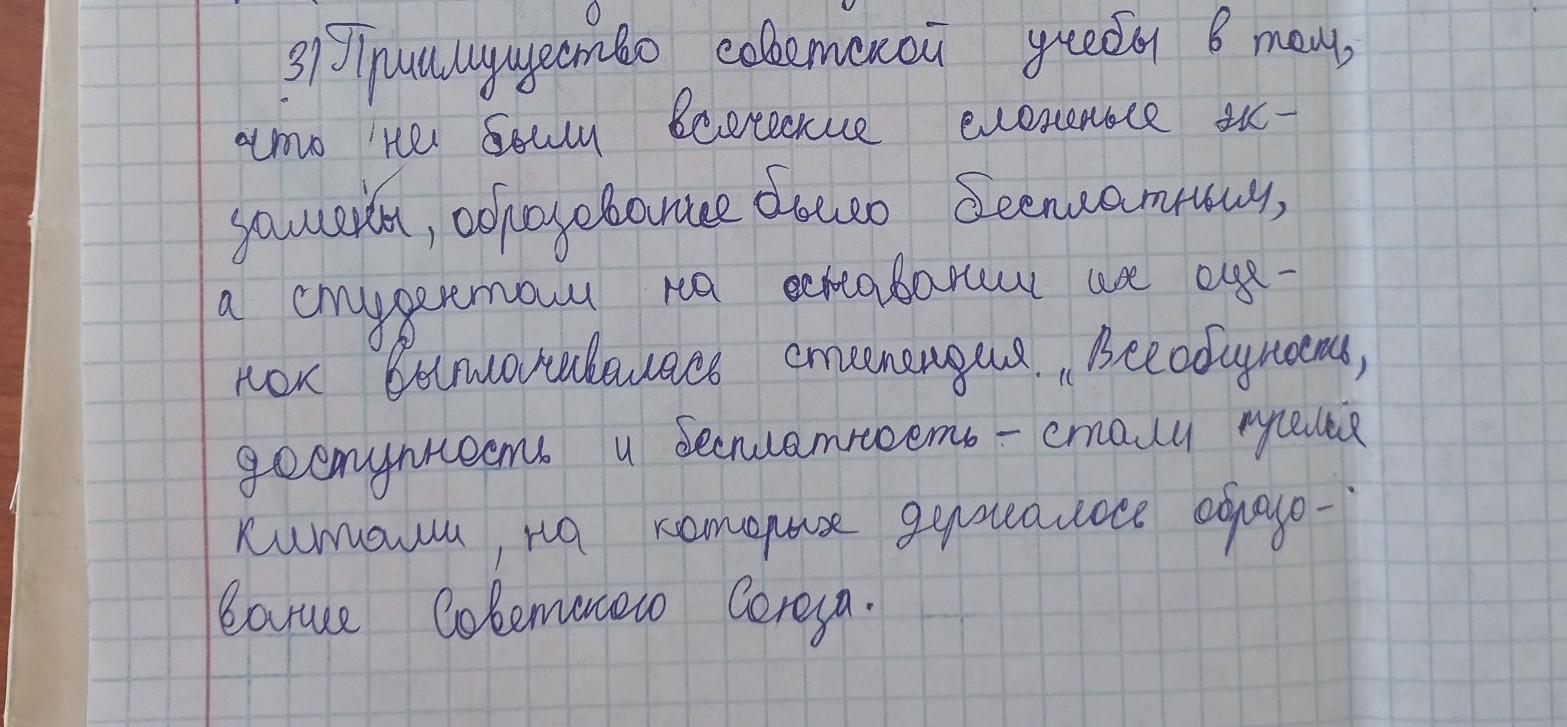 3) Приимущество советской учебы в том,
что не были всяческие сложные эк-
замены, образование было бесплатным,
а студентам на оснавании их оце-
нок выплачивалась стипендия. „Всеобщность,
доступность и бесплатность - стали
китами, на которых держалось образо-
вание Советского Союза.